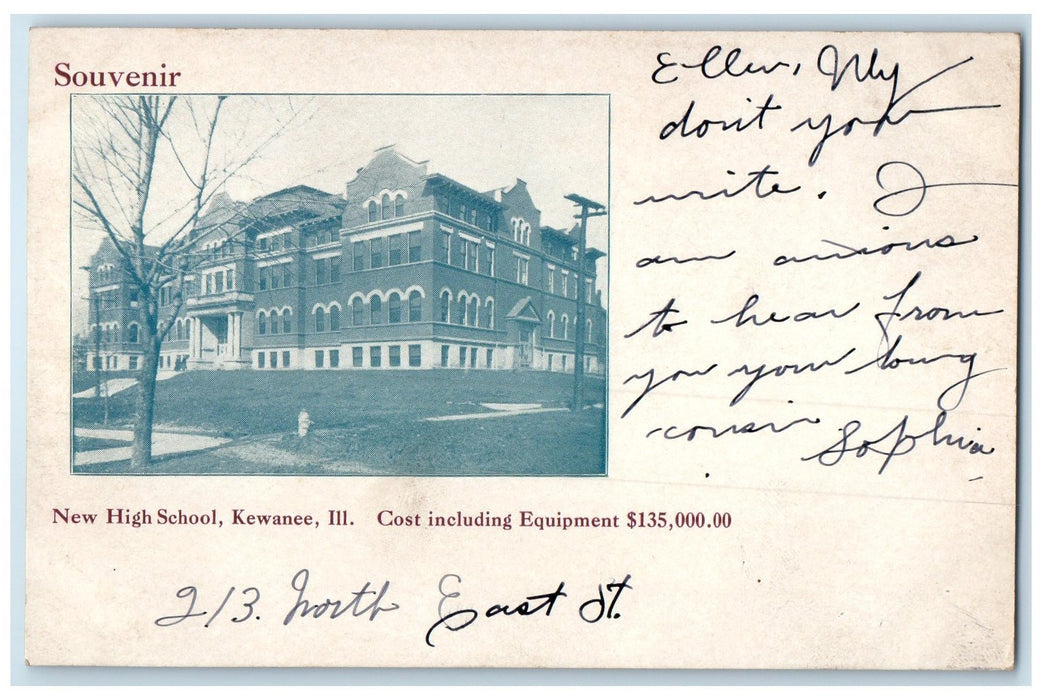 Souvenir
Ellen, Why
don't you
write. I
am anxious
to hear from
you your loving
cousin Sophia
New High School, Kewanee, Ill. Cost including Equipment $135,000.00
213. North East St.